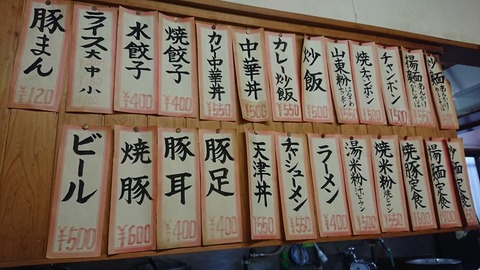 豚まん
¥120
ライス大中小
水餃子
¥400
焼餃子
¥400
カレー中華丼
¥550
中華丼
¥505
カレー炒飯
¥550
炒飯
¥500
山東粉
焼チャンポン
チャンポン
湯麺
炒麺
ビール
¥500
焼豚
¥600
豚耳
¥400
豚足
¥400
天津丼
¥550
チャーシューメン
¥550
ラーメン
¥400
湯米粉
焼米粉
焼豚定食
湯麺定食
炒麺定食